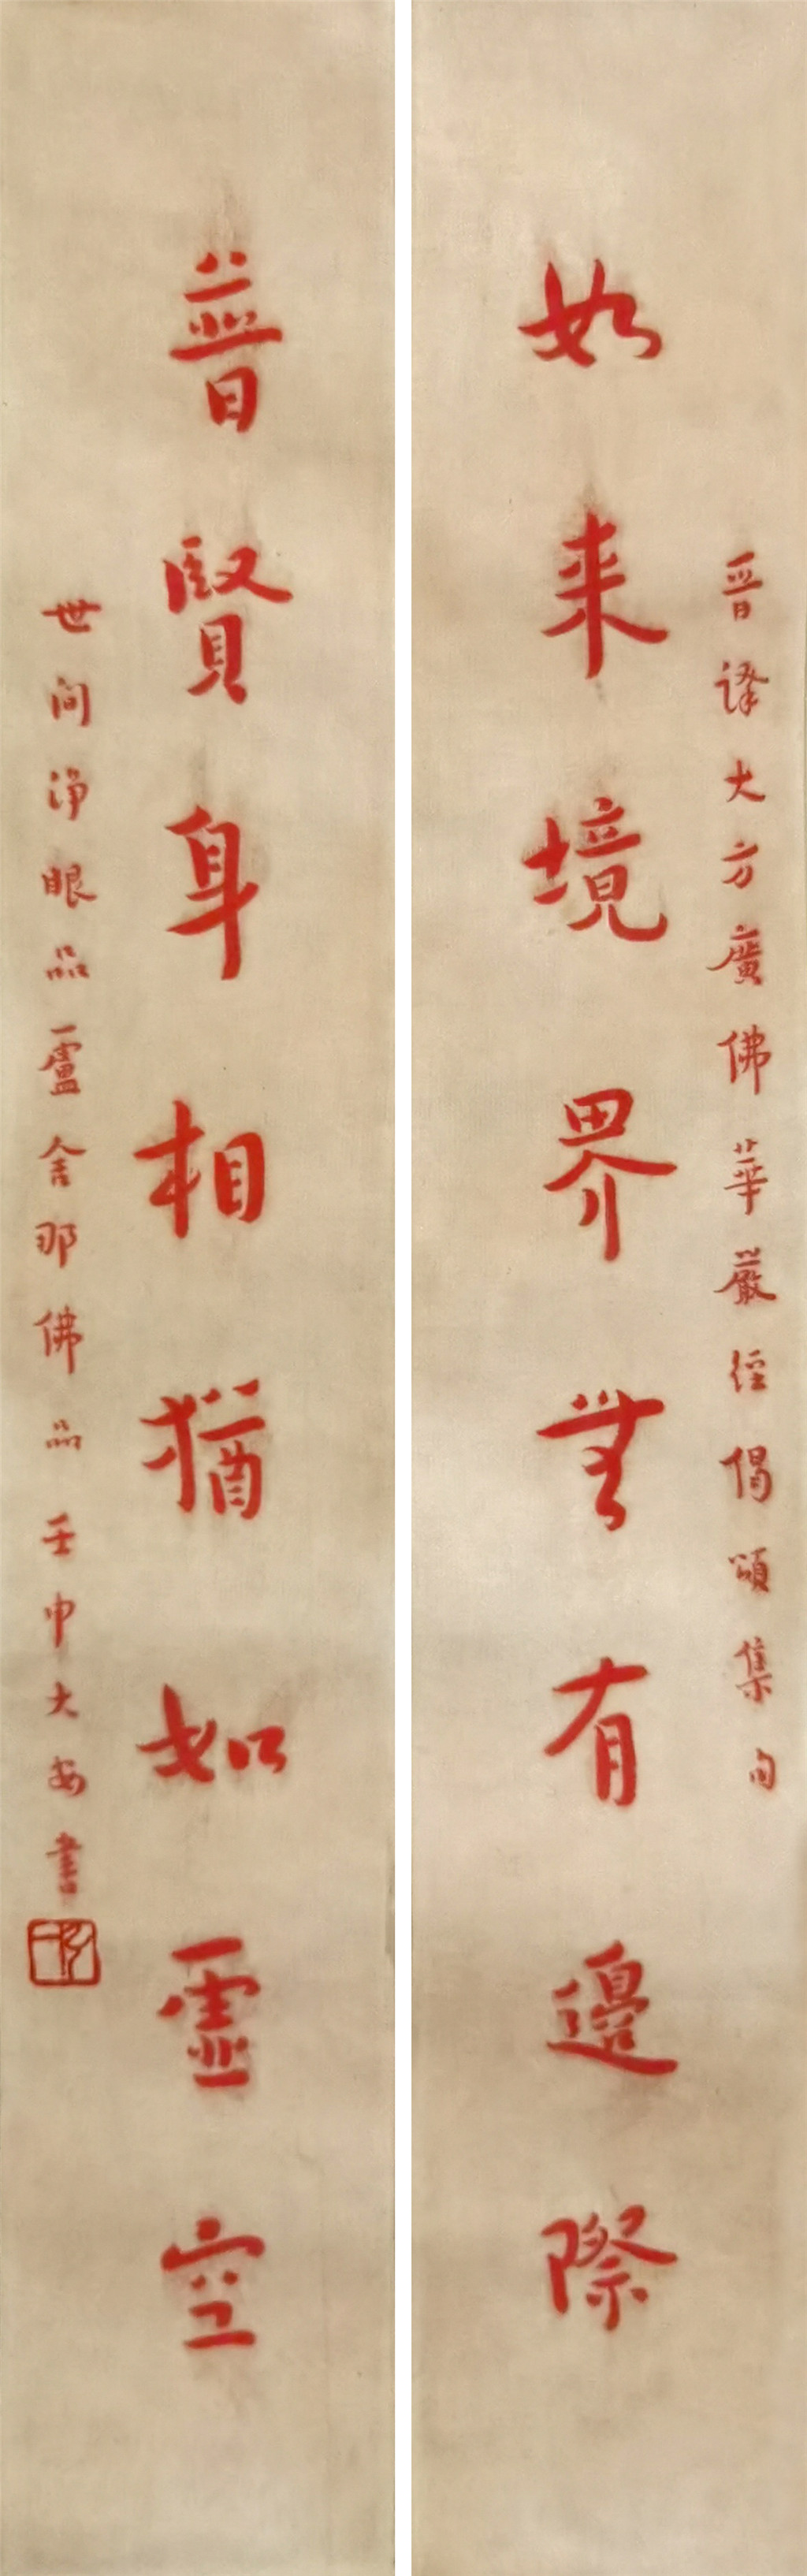 晋译大方廣佛華嚴經偈頌集句
如来境界無有邊際
普賢身相猶如虛空
世间淨眼品盧舍那佛品壬申大安書